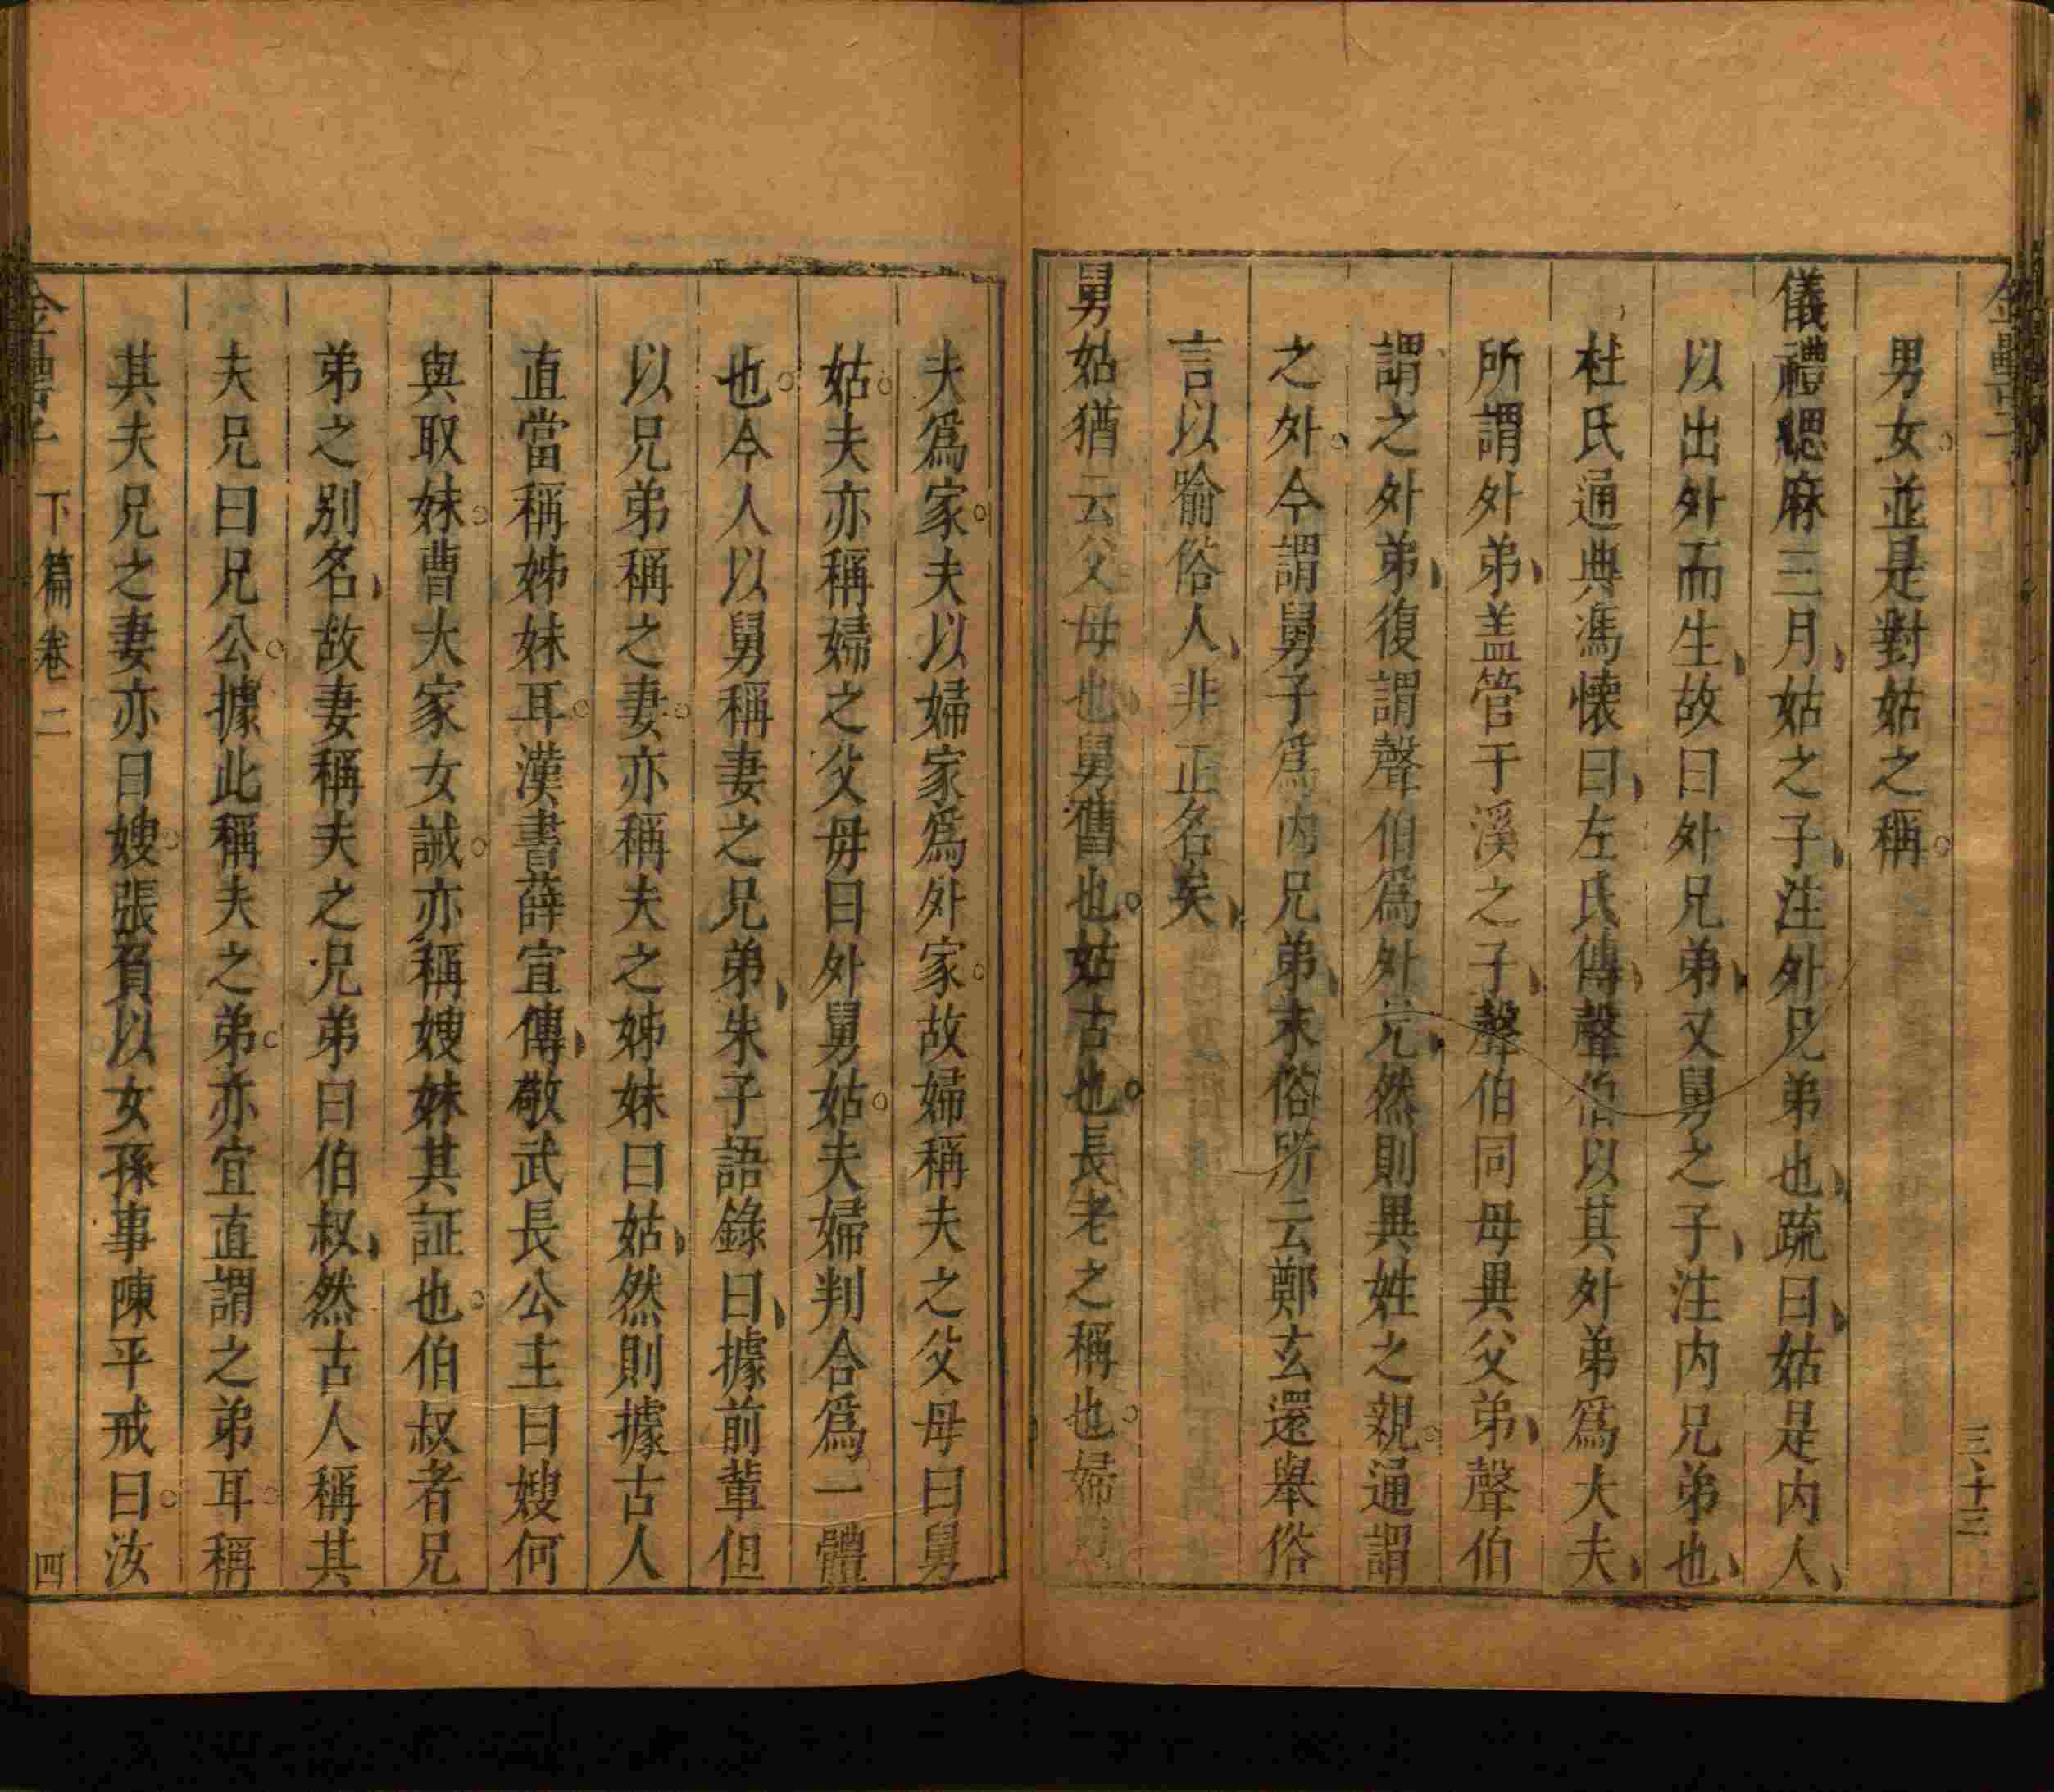 三十三
男女並是對姑之稱
儀禮緦麻三月姑之子注外兄弟也疏曰姑是内人
以出外而生故曰外兄弟又舅之子注内兄弟也
杜氏通典馮懐曰左氏傳聲伯以其外弟爲大夫
所謂外弟盖管于溪之子聲伯同母異父弟聲伯
謂之外弟復謂聲伯爲外兄然則異姓之親通謂
之外今謂舅子爲内兄弟末俗所云鄭玄還舉俗
言以喻俗人非正名矣
舅姑猶云父母也舅舊也姑古也長老之稱也婦
夫爲家夫以婦家爲外家故婦稱夫之父母曰舅
姑夫亦稱婦之父母曰外舅姑夫婦判合爲一體
也今人以舅稱妻之兄弟朱子語錄曰據前輩但
以兄弟稱之妻亦稱夫之姊妹曰姑然則據古人
直當稱姊妹耳漢書薛宣傳敬武長公主曰嫂何
與取妹曹大家女誡亦稱嫂妹其証也伯叔者兄
弟之别名故妻稱夫之兄弟曰伯叔然古人稱其
夫兄曰兄公據此稱夫之弟亦宜直謂之弟耳稱
其夫兄之妻亦曰嫂張負以女孫事陳平戒曰汝
金罍子 下篇卷二 四